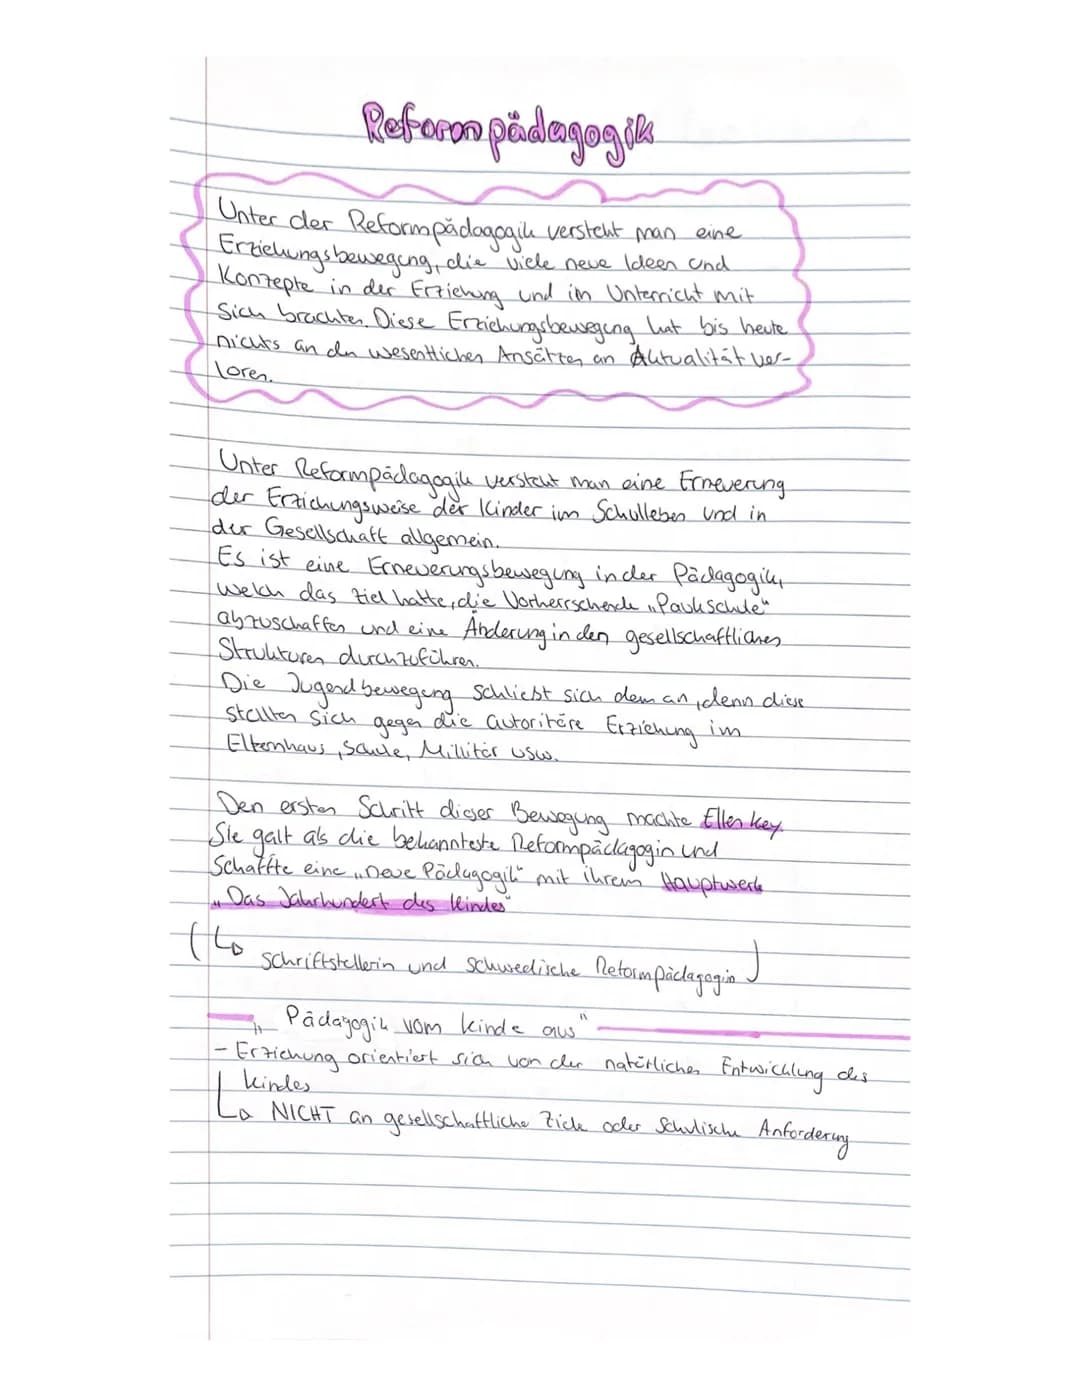 Reformpädagogik
Unter der Reformpädagogik versteht man eine
Erziehungsbewegung, die viele neue Ideen und
Konzepte in der Erziehung und im Unterricht mit
Sich brachten. Diese Erziehungsbewegung hat bis heute
nichts an den wesentlichen Ansätzen an Aktualität ver-
loren.
Unter Reformpädagogik versteht man eine Erneuerung
der Erziehungsweise der Kinder im Schulleben und in
der Gesellschaft allgemein.
Es ist eine Erneuerungsbewegung in der Pädagogik,
welch das Ziel hatte, die Vorherrschende „Paukschule“
abzuschaffen und eine Änderung in den gesellschaftlichen
Strukturen durchzuführen.
Die Jugendbewegung schließt sich dem an, denn diese
stellten sich gegen die autoritäre Erziehung im
Elternhaus, Schule, Millitär usw.
Den ersten Schritt dieser Bewegung machte Ellen Key.
Sie galt als die bekannteste Reformpädagogin und
Schaffte eine „neue Pädagogik“ mit ihrem Hauptwerk
„Das Jahrhundert des Kindes“
(↳ schriftstellerin und schwedische Reformpädagogin)
„Pädagogik vom Kinde aus“
- Erziehung orientiert sich von der natürlichen Entwicklung des
Kindes
↳ NICHT an gesellschaftliche Ziele oder Schulische Anforderung